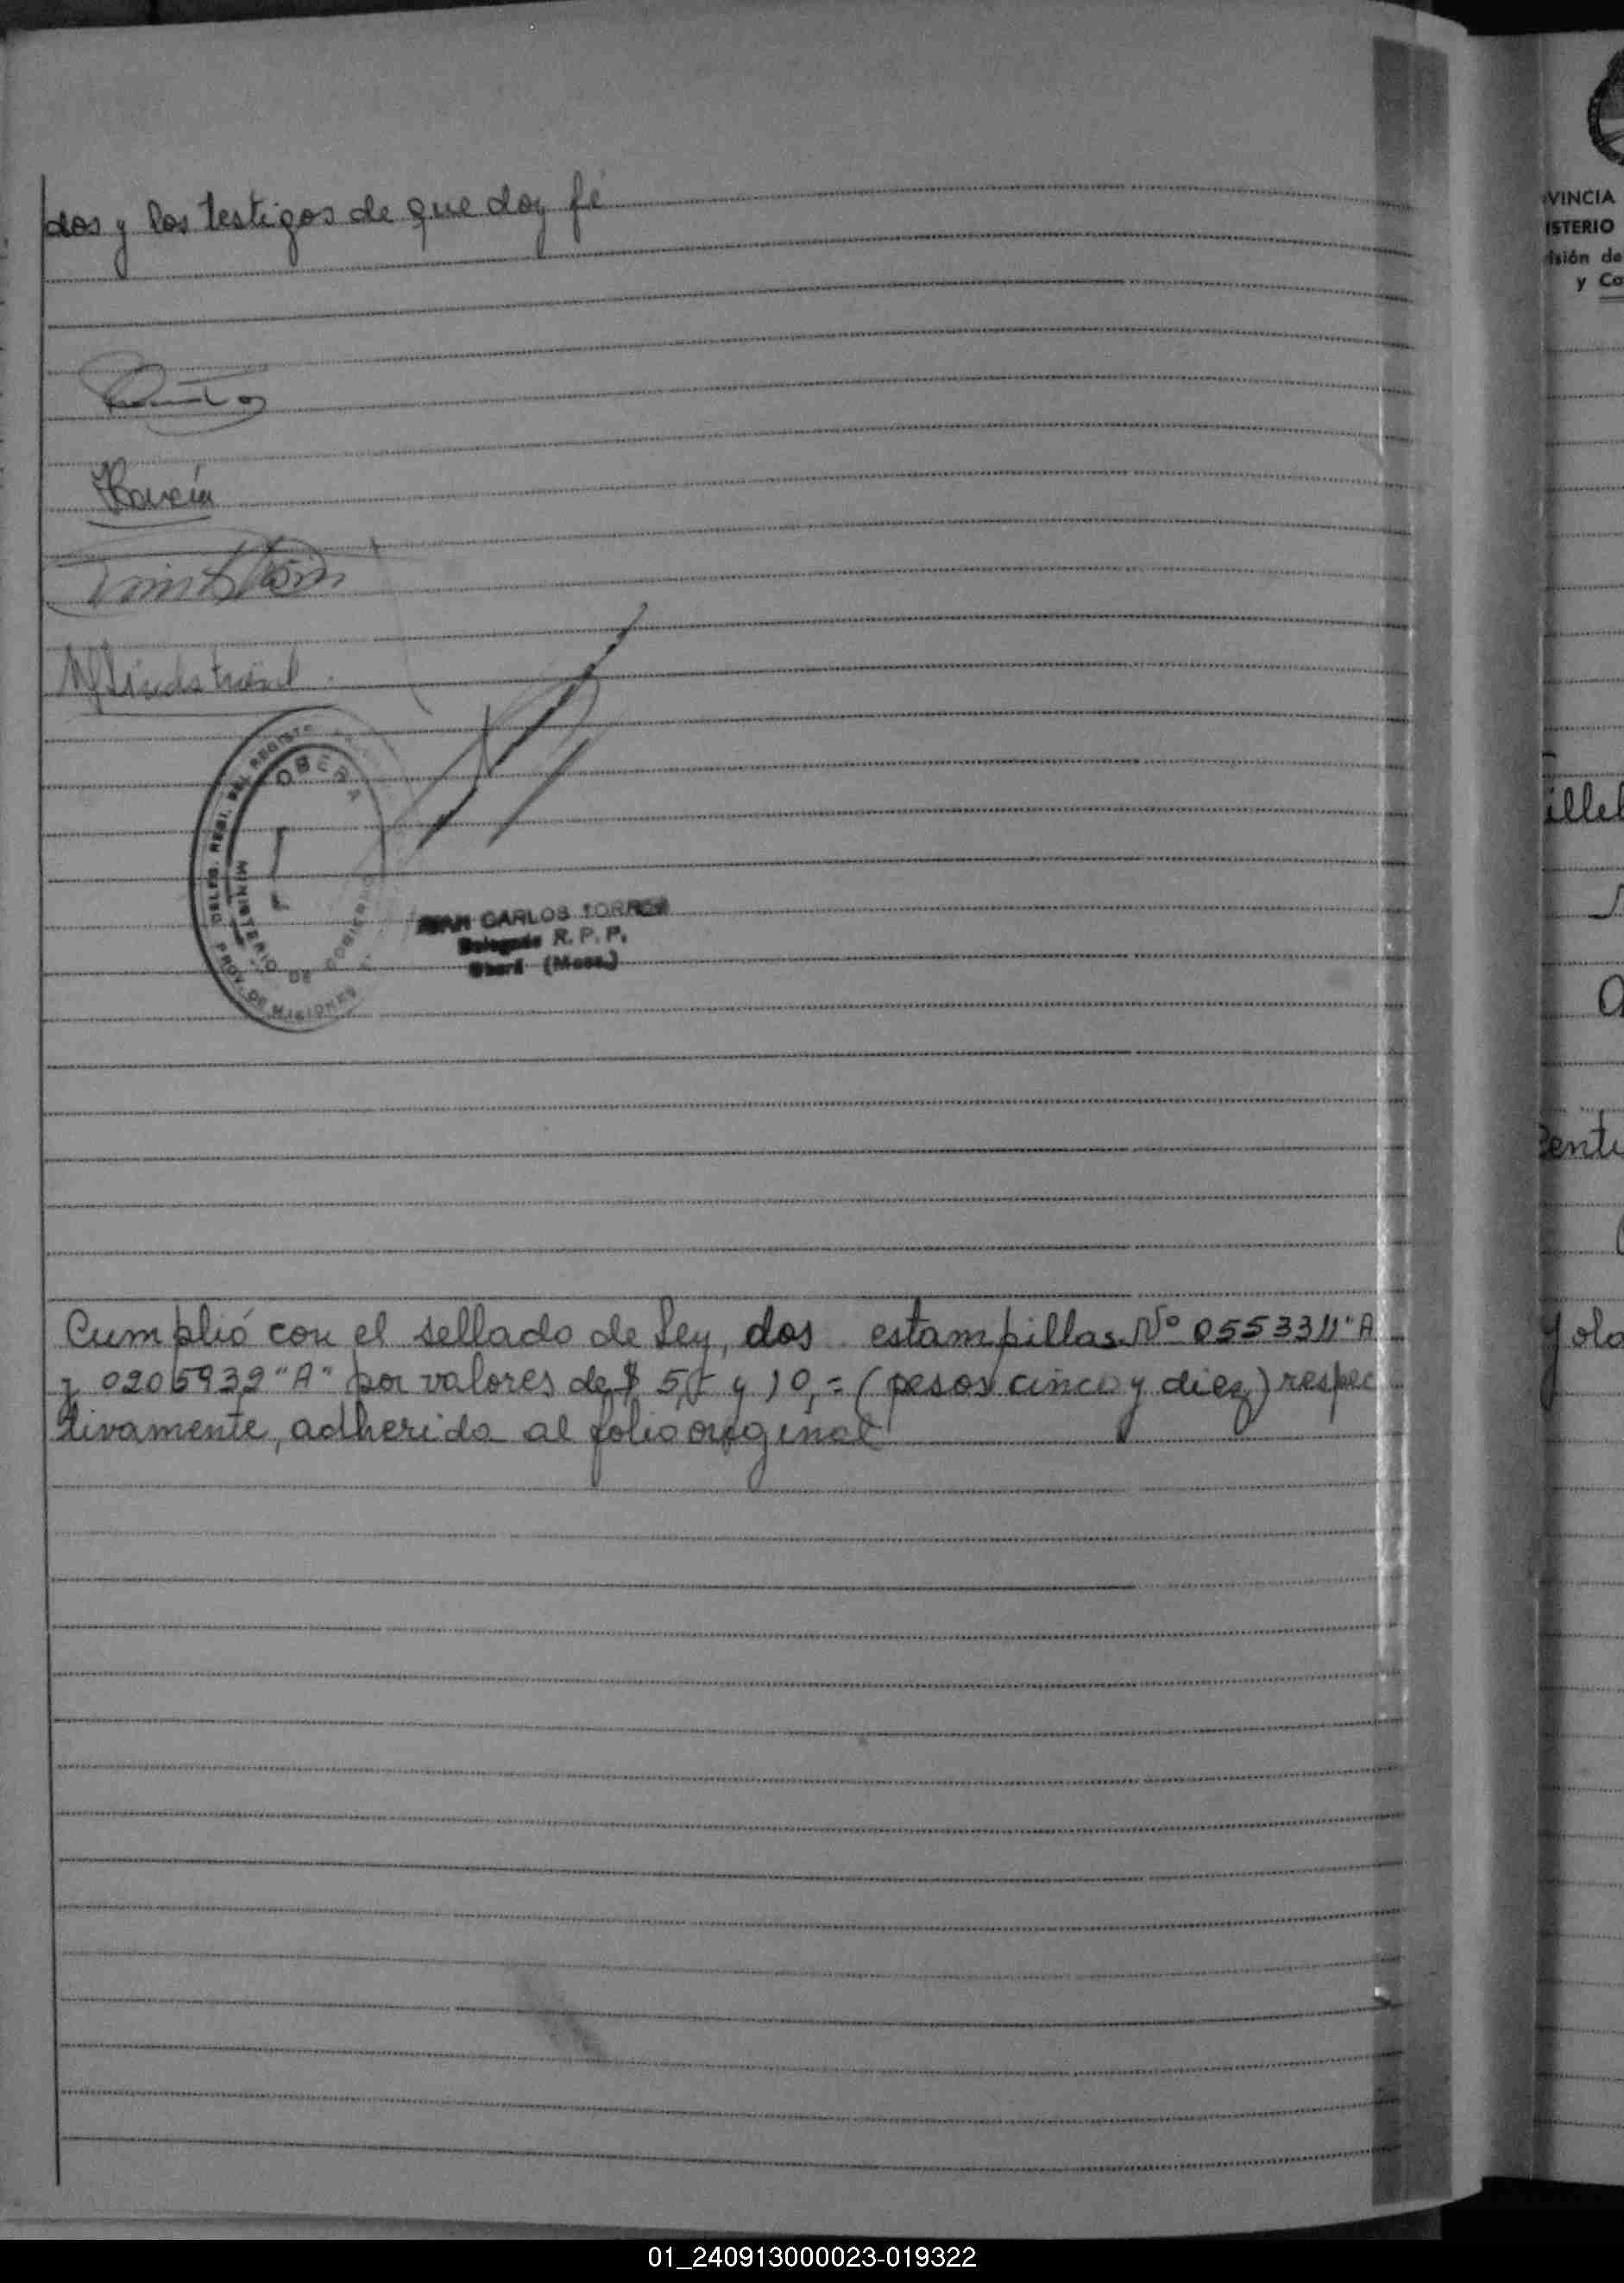 dos y los testigos de que doy fé
DELEG. REGI. DEL REGISTR
OBERA
MINISTERIO DE GOBIERNO
PROV. DE MISIONES
JUAN CARLOS TORRES
Delegado R. P. P.
Oberá (Mnes.)
Cumplió con el sellado de Ley, dos estampillas Nº 0553311 "A
y 0205939 "A" por valores de $ 5,- y 10,= (pesos cinco y diez) respec
tivamente, adherida al folio original
VINCIA
ISTERIO
isión de
y Co
01_240913000023-019322